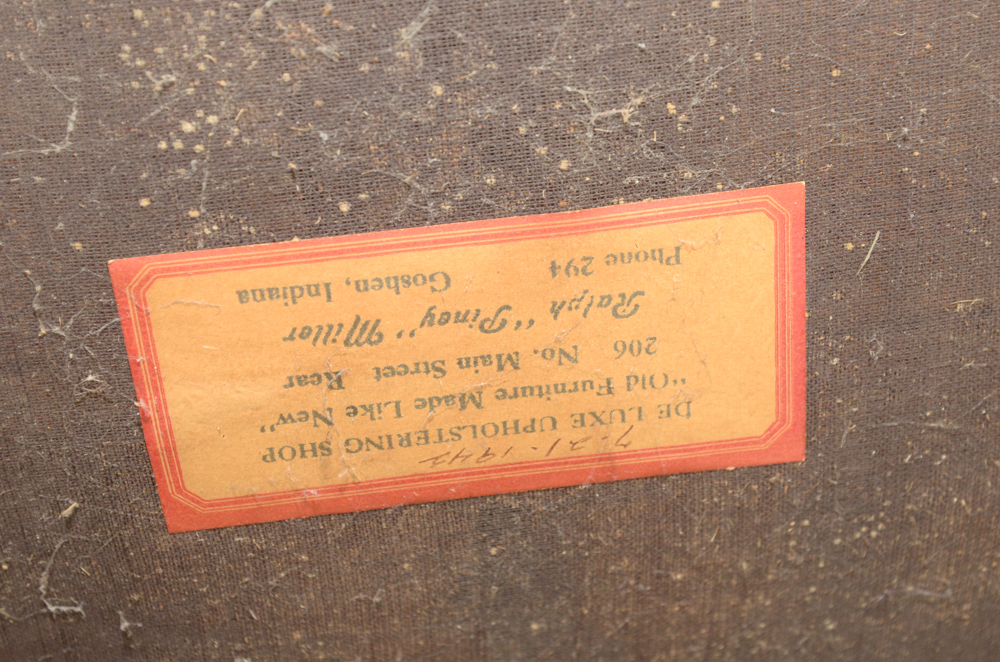 DE LUXE UPHOLSTERING SHOP
"Old Furniture Made Like New"
206 No. Main Street Rear
Ralph "Piney" Miller
Phone 294 Goshen, Indiana
7-21-1942